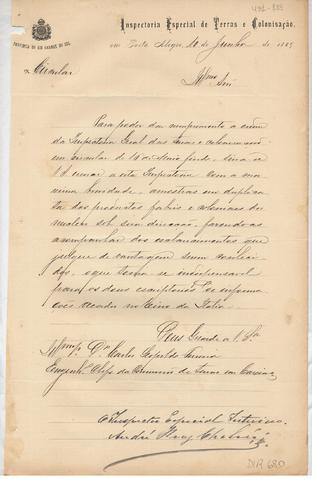 Inspectoria Especial de Terras e Colonisação.
PROVINCIA DO RIO GRANDE DO SUL
em Porto Alegre, 10 de Junho de 188
Circular
Illmo Snr
Para poder dar cumprimento a ordem
da Inspectoria Geral das Terras e Colonisação
em circular de 16 de Maio findo, sirva-se
V. S. enviar a esta Inspectoria com a ma-
xima brevidade, amostras em duplica-
ta dos productos e coloniaes do
nucleo sob sua direcção, fazendo-as
acompanhar dos esclarecimentos que
julgar de vantagem serem conheci-
dos, o que torna-se indispensavel
para os dous exemplares
no Reino da Italia.
Deus Guarde a V. Sa
Illmo Snr Dr Carlos Leopoldo
Engenho Chefe da Commissão de Terras em Caxias
O Inspector Especial Interino
André
DIR 680